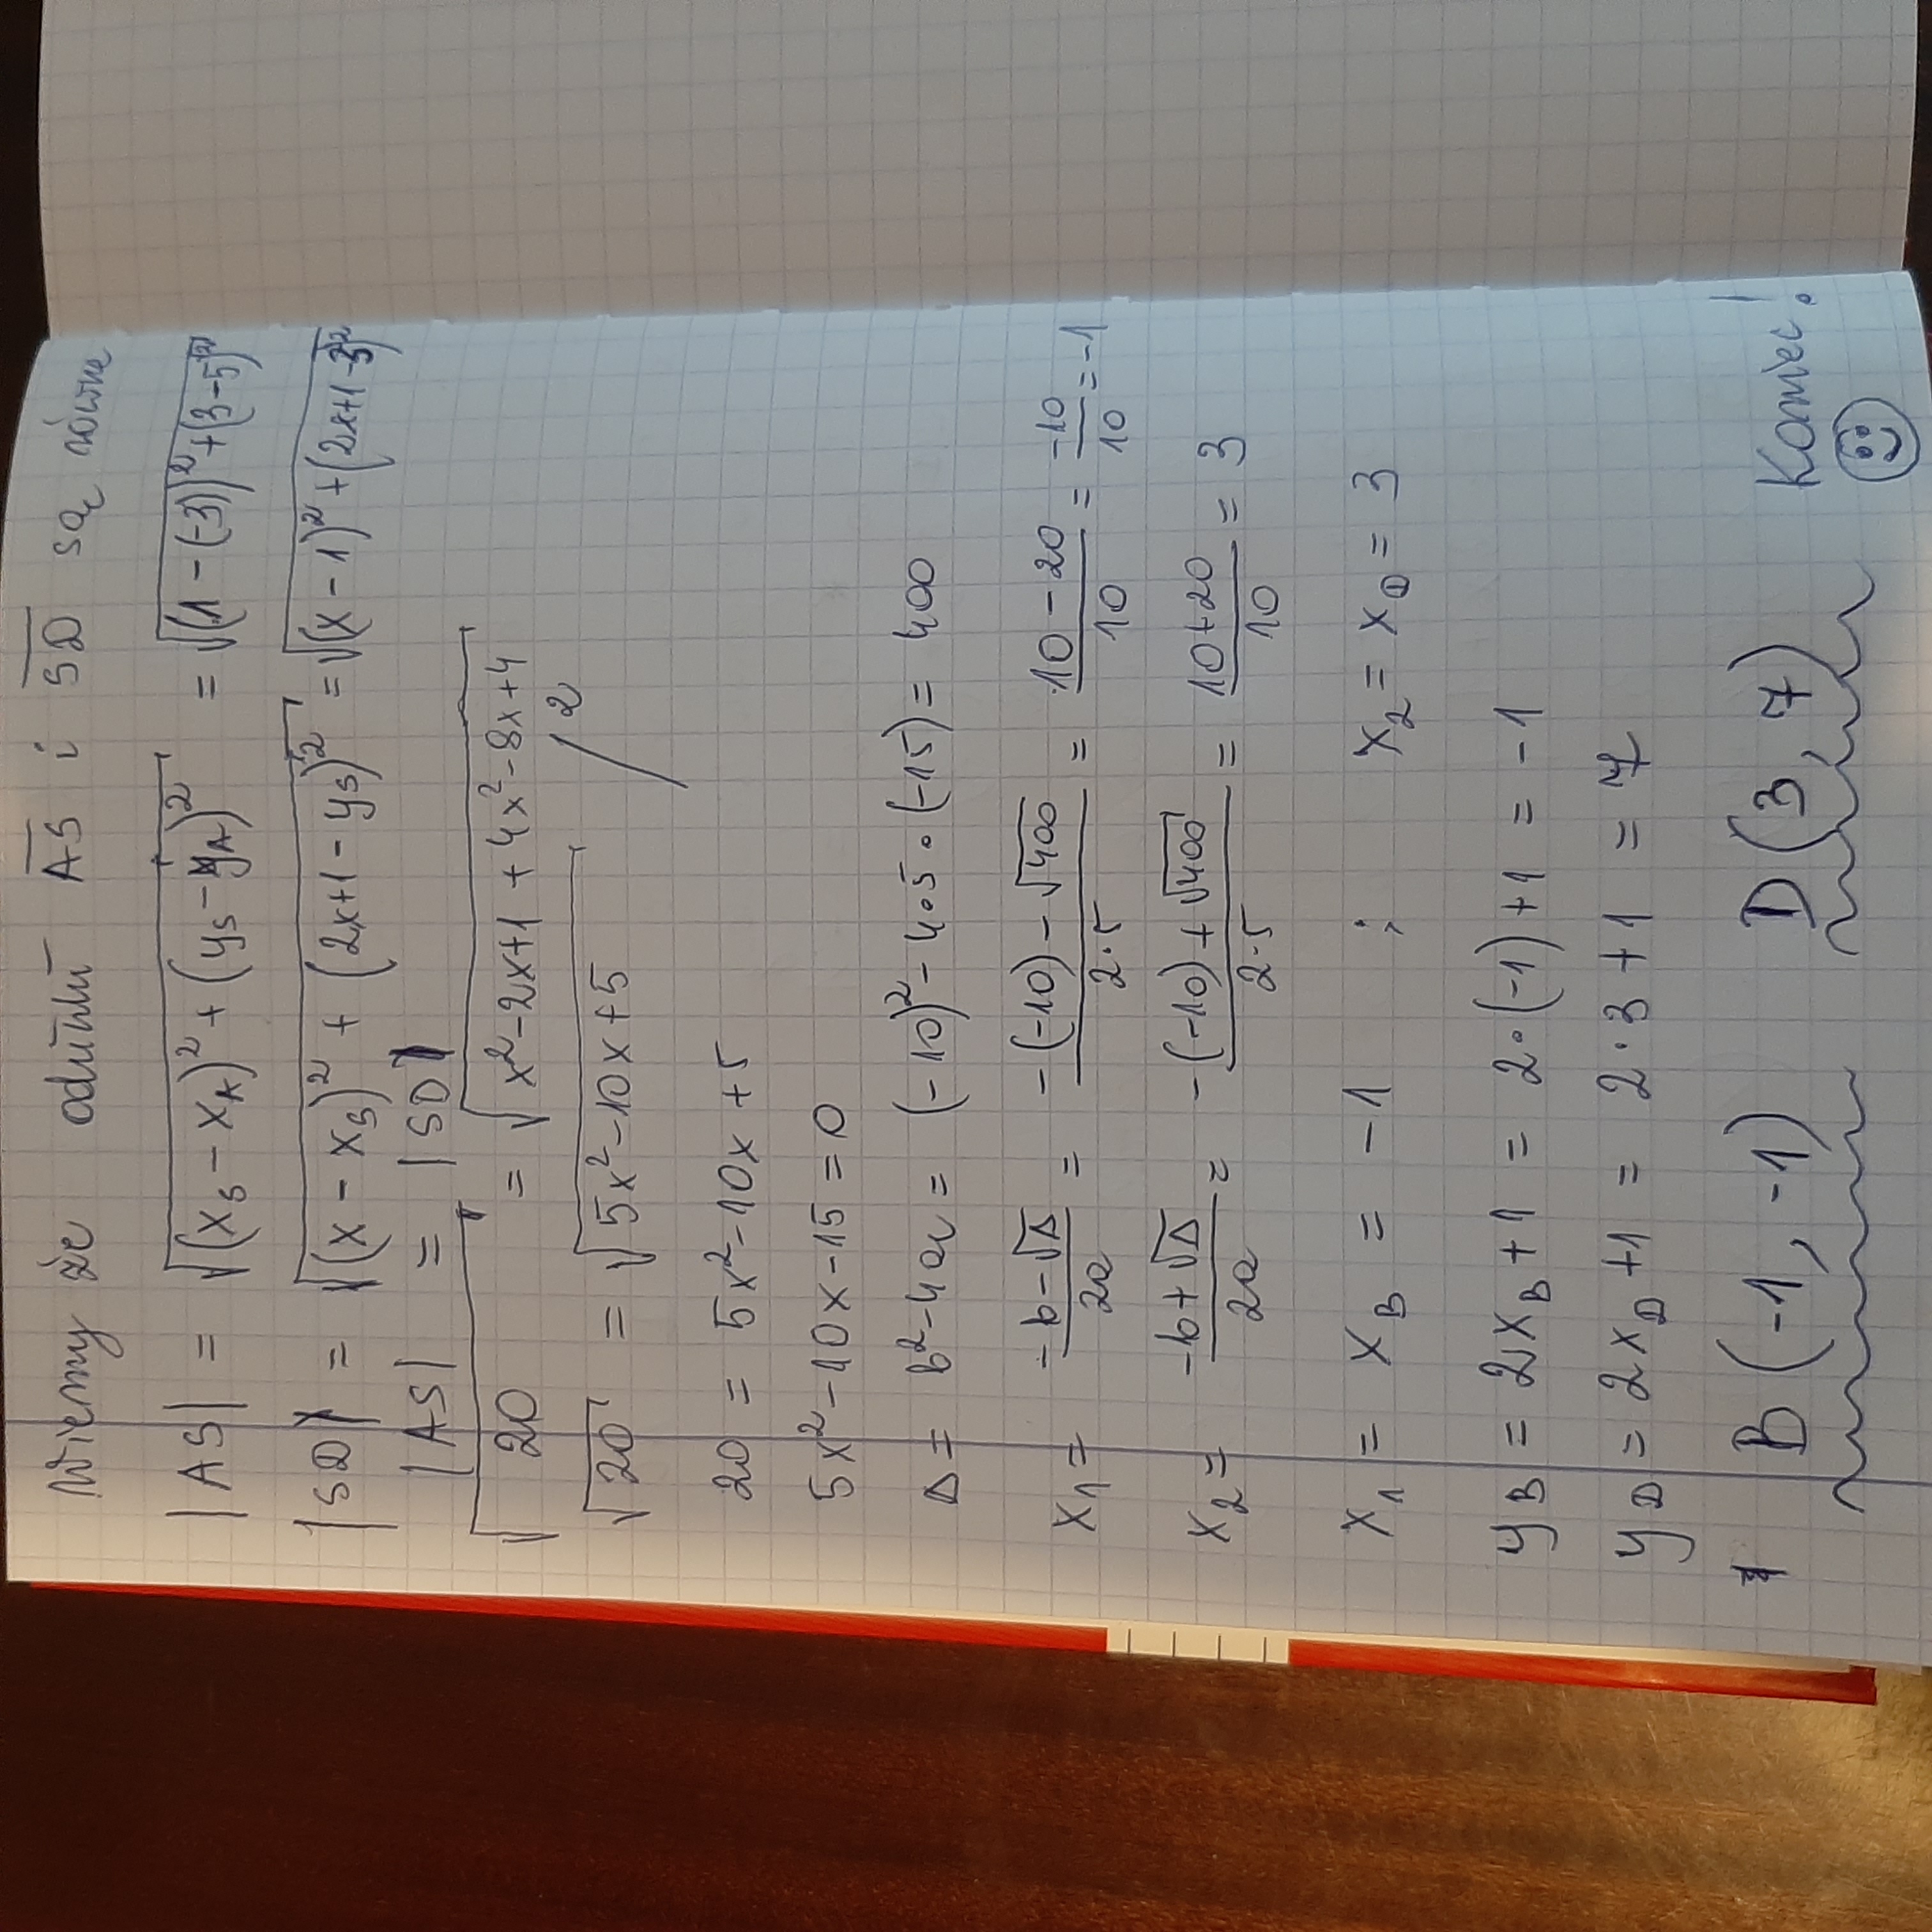 Wiemy że odcinki AS i SD są równe
|AS| = √((x_S - x_A)² + (y_S - y_A)²) = √((1 - (-3))² + (3-5)²)
|SD| = √((x - x_S)² + (2x+1 - y_S)²) = √((x - 1)² + (2x+1-3)²)
|AS| = |SD|
√20 = √(x²-2x+1 + 4x²-8x+4)
√20 = √(5x²-10x+5) /2
20 = 5x²-10x+5
5x²-10x-15=0
Δ = b²-4ac = (-10)²-4·5·(-15) = 400
x₁ = (-b-√Δ)/2a = (-(-10)-√400)/(2·5) = (10-20)/10 = -10/10 = -1
x₂ = (-b+√Δ)/2a = (-(-10)+√400)/(2·5) = (10+20)/10 = 3
x₁ = x_B = -1 ; x₂ = x_D = 3
y_B = 2x_B+1 = 2·(-1)+1 = -1
y_D = 2x_D+1 = 2·3+1 = 7
B(-1,-1) D(3,7) Koniec!